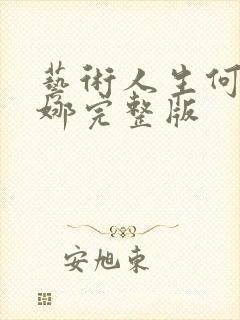 藝術人生何
娜完整版
安旭東